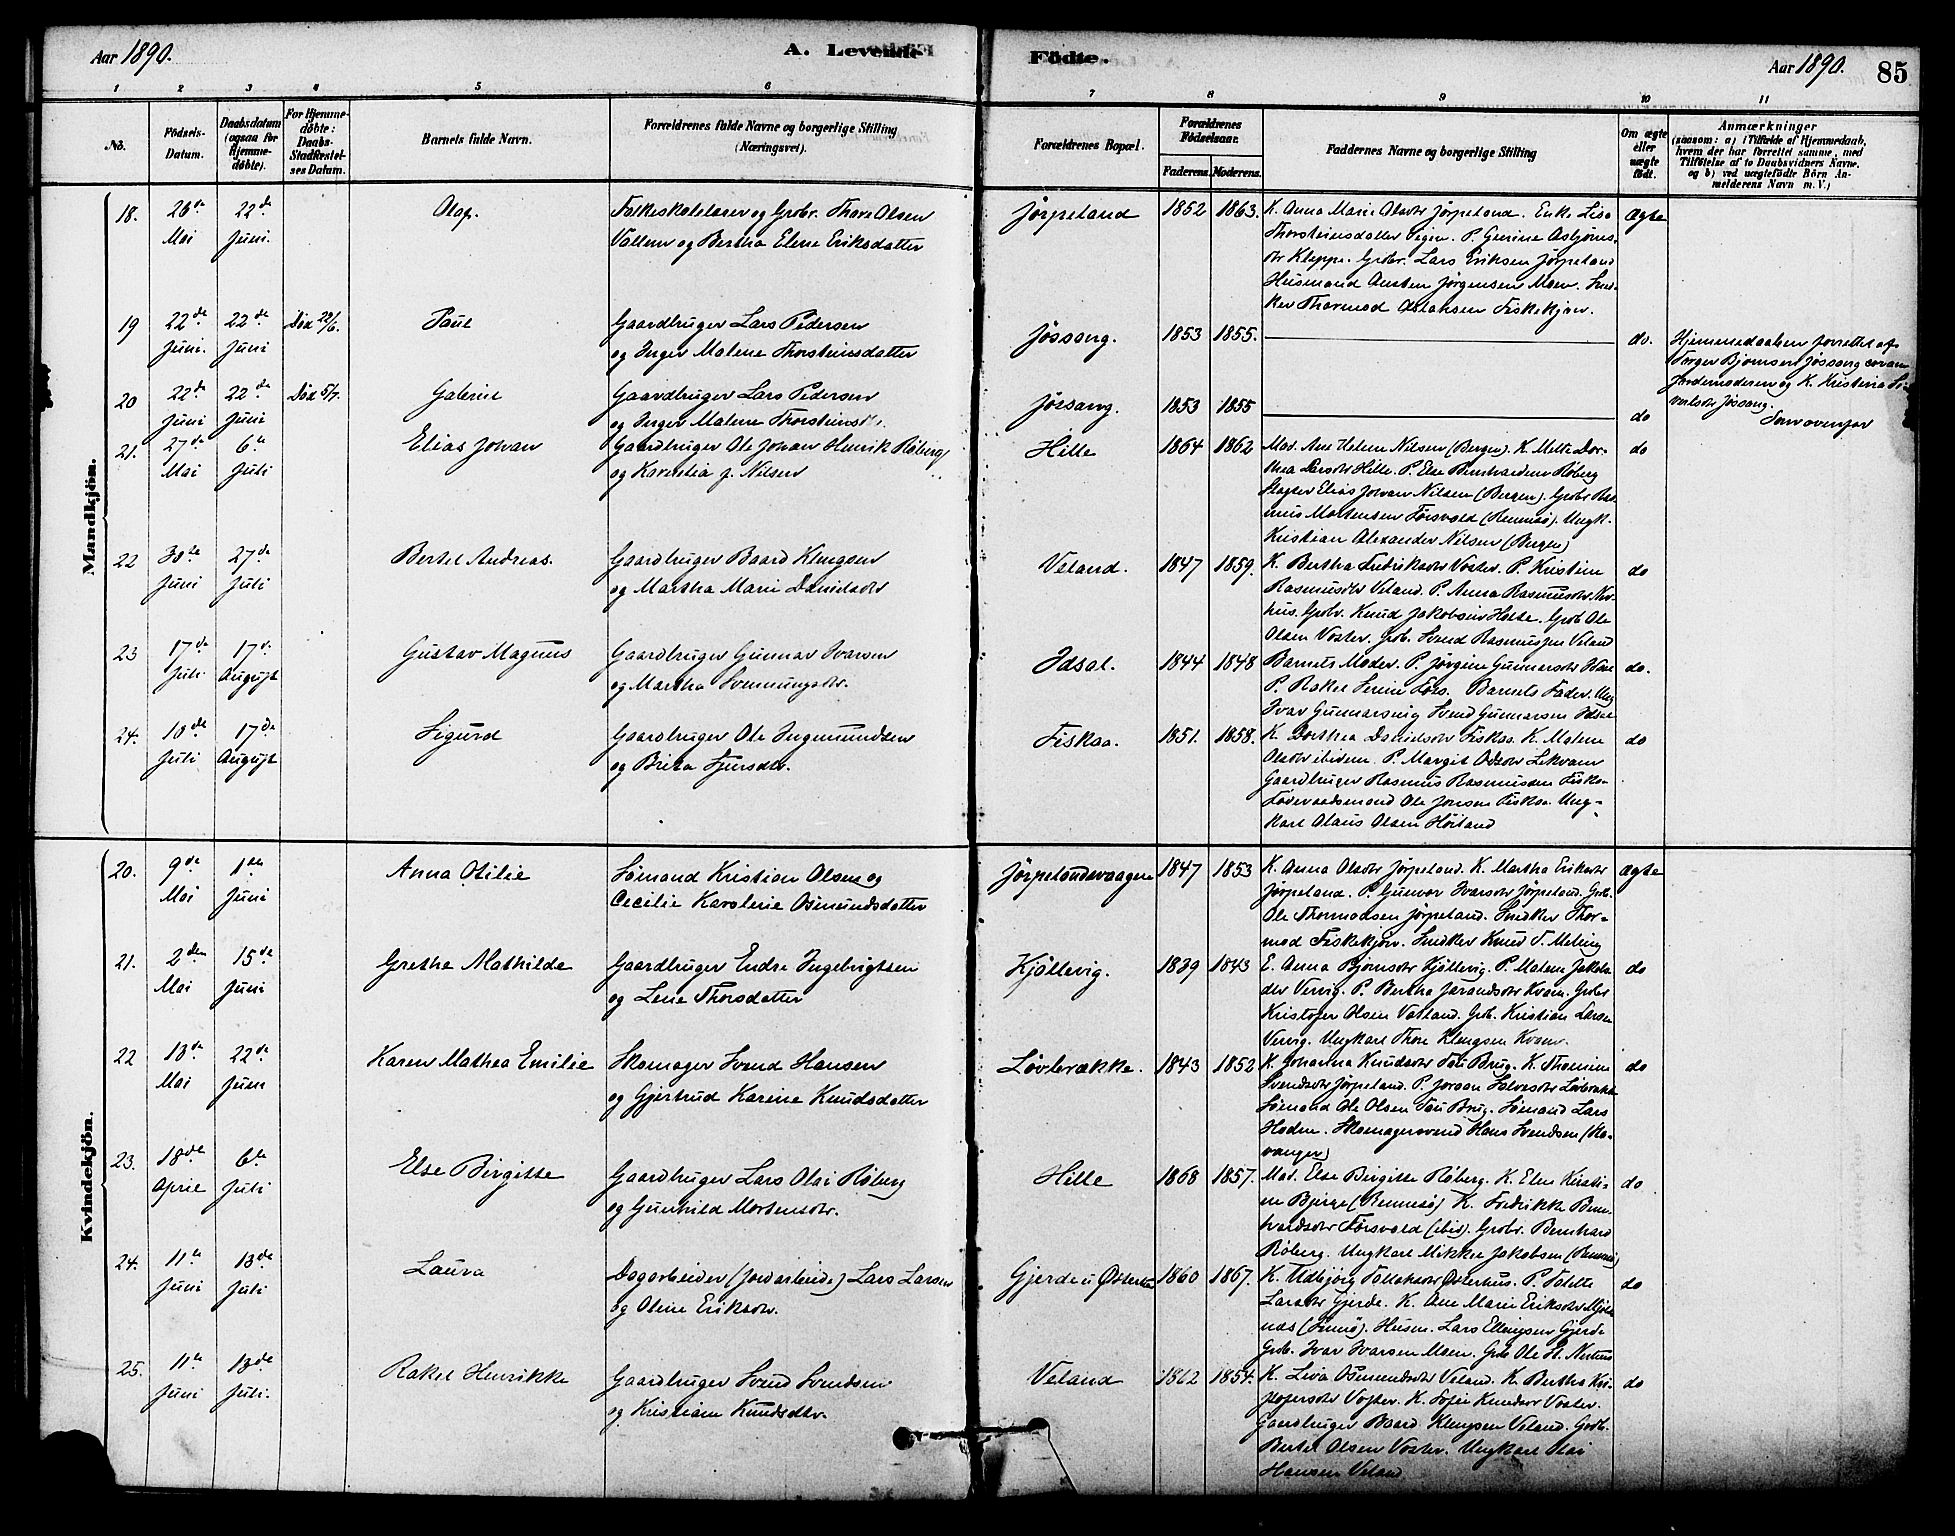 Aar 1890.
A. Levende
Födte.
Aar 1890.
85
1 2 3 4 5 6 7 8 9 10 11
No.
Födsels-Datum.
Daabsdatum (ogsaa for Hjemme-döbte).
For Hjemme-döbte: Daabs-Stadfæstel-ses Datum.
Barnets fulde Navn.
Forældrenes fulde Navne og borgerlige Stilling (Næringsvei).
Forældrenes Bopæl.
Forældrenes Födselsaar.
Faderens. Moderens.
Faddernes Navne og borgerlige Stilling
Om ægte eller uægte födt.
Anmærkninger
(saasom: a) i Tilfælde af Hjemmedaab, hvem der har forrettet samme, med Tilföielse af to Daabsvidners Navne, og b) ved uægtefödte Börn Anmelderens Navn m. V.)
Mandkjön.
18. 26de Mai 22de Juni. Olaf.
Folkeskolelærer og Grbr. Thore Olsen
Vallem og Bertha Elene Eriksdatter
Jørpeland 1852 1863.
K. Anna Marie Olsdtr Jørpeland. Enke Lisa
Thorsteinsdatter Vigen. P. Gurine Asbjørns-
dtr Kleppe. Grbr. Lars Eriksen Jørpeland
Husmand Austen Jørgensen Moen. Sned-
ker Thormod Fiskekjøn.
Ægte
19 22de Juni. 22de Juni Död 29/6. Paul
Gaardbruger Lars Pedersen
og Inger Malene Thorsteinsdatter
Jøssang. 1853 1855. do.
Hjemmedaaben forrettet af
Torger Bjørnsen Jøssang coram
Jordemoderen og K. Kristina Si-
vertsdtr Jøssang.
20 22de Juni 22de Juni Död 5/7. Galerine
Gaardbruger Lars Pedersen
og Inger Malene
Jøssang. 1853 1855 do
Som ovenfor
21. 27de Mai 6te Juli Elias Johan
Gaardbruger Ole Johan Henrik Røberg
og Karentia f. Nilsen
Hille 1864 1862
Mad. Ane Helene Nilsen (Bergen). K. Mette Dor-
thea Larsdtr Hille. P. Else Bernhardine Røberg
Slagter Elias Johan Nilsen (Bergen). Grbr Ras-
mus Mortensen Førsvold (Rennesø). Ungk.
Kristian Alexander Nilsen (Bergen)
do
22 30te Juni 27de Juli Bertel Andreas.
Gaardbruger Baard Klengsen
og Martha Marie Danielsdtr
Veland. 1847 1859.
K. Bertha Fredriksdtr Voster. P. Kristine
Rasmusdtr Veland. P. Anna Rasmusdtr Ner-
hus. Grbr. Knud Jakobsen Holte. Grbr Ole
Olsen Voster. Grb. Svend Rasmussen Veland
do
23 17de Juli 17de August Gustav Magnus
Gaardbruger Gunnar Ivarsen
og Martha Svenningsdtr.
Idsal. 1844 1848
Barnets Moder. P. Jørgine Gunnarsdtr Idsal
P. Rakel Serine Fors. Barnets Fader. Ung
Ivar Gunnarsen og Svend Gunnarsen Idsal
do.
24. 10de Juli 17de August Sigurd
Gaardbruger Ole Ingemundsen
og Brita Fjersdtr.
Fiskaa. 1851. 1858.
K. Dorthea Danielsdtr Fiskaa. K. Malene
Olsdtr ibidem. P. Margit Oddsdtr Lekvam
Gaardbruger Rasmus Rasmussen Fiskaa
Ole Jonsen Fiskaa. Ung-
karl Olaus Olsen Høiland
do
Kvindekjön.
20. 9de Mai 1ste Juni Anna Otilie
Sömand Kristian Olsen og
Cecilie Karoline Osmundsdatter
Jørpelandsvaagen 1847 1853
K. Anna Olsdtr Jørpeland. K. Martha Eriksdtr
Jørpeland. P. Gunvor Ivarsdtr Jørpeland. Grb.
Ole Thormodsen Jørpeland. Snedker Thor-
mod Fiskekjøn. Snedker Knud T. Meling
Ægte
21. 2den Mai 15de Juni Grethe Mathilde
Gaardbruger Endre Ingebrigtsen
og Lene Thorsdatter
Kjöllevig. 1839 1843
E. Anna Bjørnsdtr Kjöllevig. P. Malene Jakobs-
dtr Vervig. P. Bertha Jørandsdtr Kvam. Grbr
Kristofer Olsen Vatland. Grb. Kristian Larsen
Vervig. Ungkarl Thore Klengsen Kvam.
do
22 13de Mai 22de Juni Karen Mathea Emilie
Skomager Svend Hansen
og Gjertrud Karine Knudsdatter
Løvbrække. 1843 1852
K. Johanna Knudsdtr Tau Brug. K. Thomine
Svendsdtr Jørpeland. P. Joraan Løvbrække
Sömand Ole Olsen Tau Brug. Sömand Lars
Hodne. Skomagersvend Hans Svendsen (Sta-
vanger)
do
23. 18de April 6te Juli Else Birgitte
Gaardbruger Lars Olai Røberg
og Gunhild Mortensdtr.
Hille 1868 1857.
Mad. Else Birgitte Røberg. K. Elen Kirsti-
ne Bjerge (Rennesø) K. Fredrikke Bern-
hardsdtr Førsvold (ibid). Grbr. Bernhard
Røberg. Ungkarl Mikkel Jakobsen (Rennesø)
do
24. 11te Juni 13de Juli Laura
Dagarbeider (Jordarbeide) Lars Larsen
og Oline Eriksdtr.
Gjerde u Østerhus 1860 1867.
K. Udbjörg Tollaksdtr Østerhus. P. Tolette
Larsdtr Gjerde. K. Ane Marie Eriksdtr Mjöl-
næs (Finnø). Husm. Lars Ellingsen Gjerde
Grb. Ivar Ivarsen Moen. Grb Ole H. Nerhus
do
25. 11te Juni 13de Juli. Rakel Henrikke
Gaardbruger Svend Svendsen
og Kristiane Knudsdtr.
Veland 1862 1854.
K. Lisa Osmundsdtr Veland. K. Bertha Kri-
stofersdtr Voster. K. Sofie Knudsdtr Voster.
Gaardbruger Baard Klengsen Veland. Grdb.
Bertel Olsen Voster. Ungkarl Olai
Hansen Veland
do